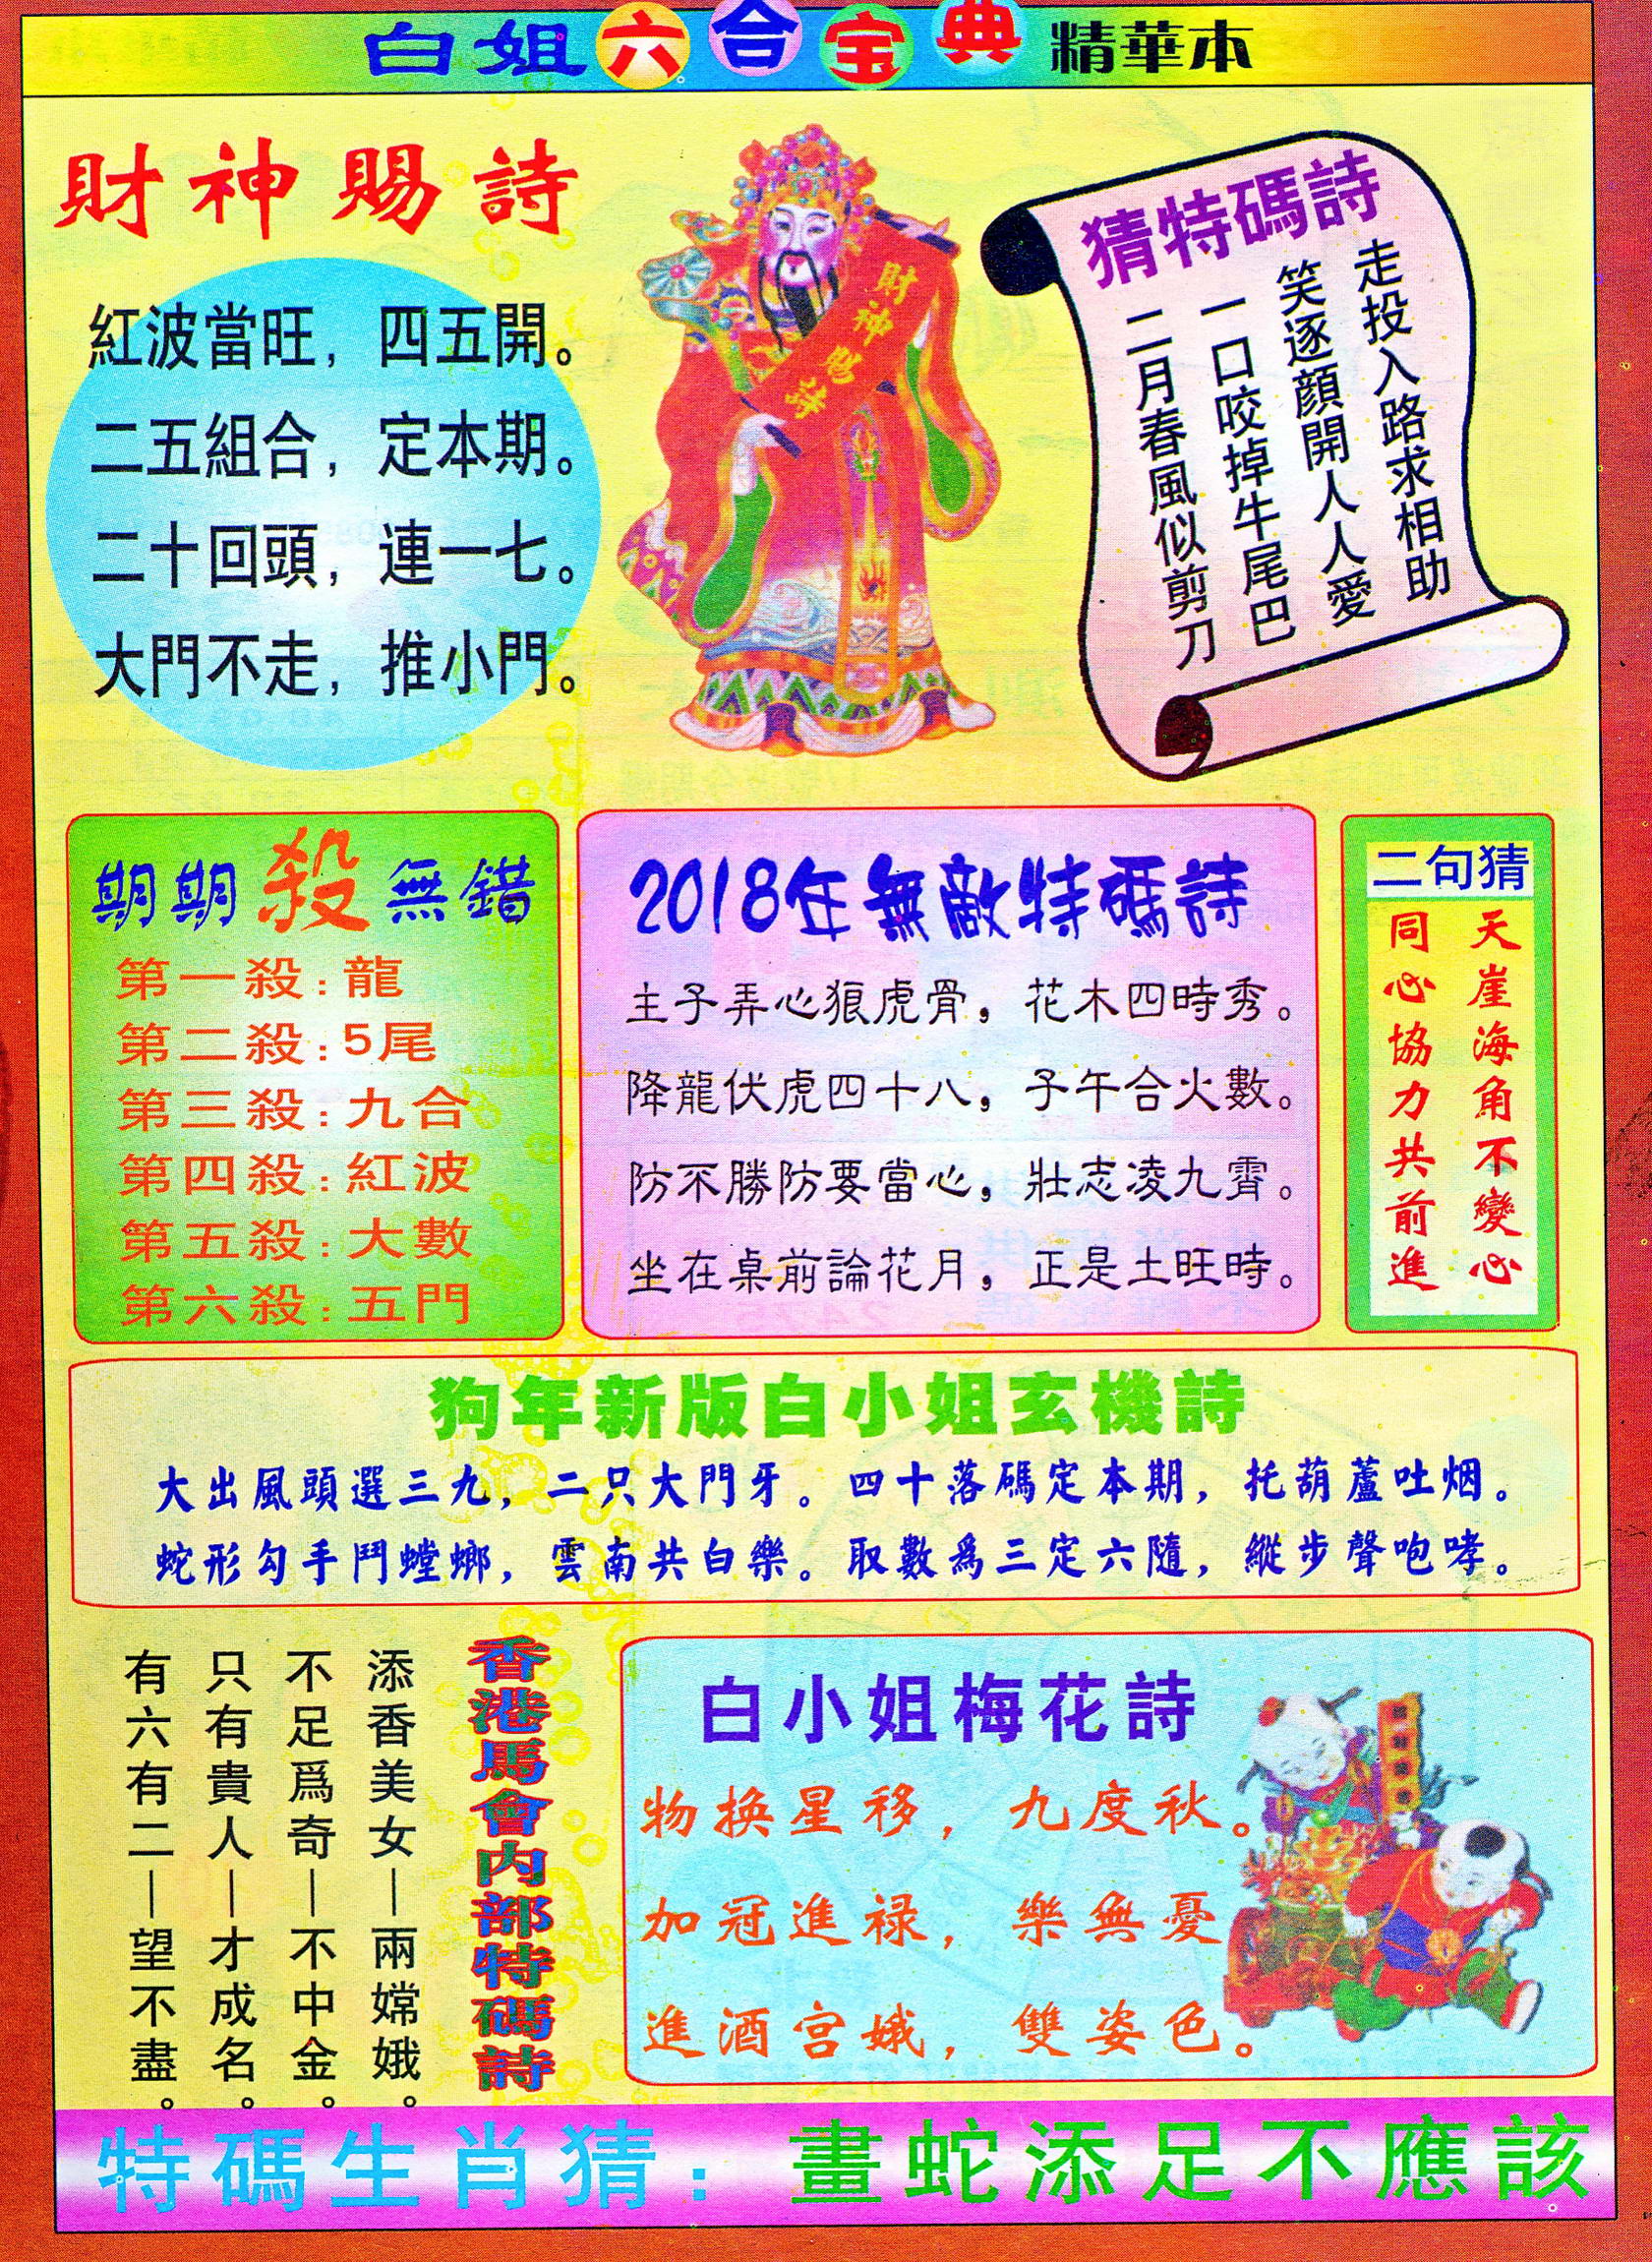 白姐六合宝典精華本
財神賜詩
紅波當旺，四五開。
二五組合，定本期。
二十回頭，連一七。
大門不走，推小門。
財神賜詩
猜特碼詩
走投入路求相助
笑逐顏開人人愛
一口咬掉牛尾巴
二月春風似剪刀
期期殺無錯
第一殺：龍
第二殺：5尾
第三殺：九合
第四殺：紅波
第五殺：大數
第六殺：五門
2018年無敵特碼詩
主子弄心狼虎骨，花木四時秀。
降龍伏虎四十八，子午合火數。
防不勝防要當心，壯志凌九霄。
坐在桌前論花月，正是土旺時。
二句猜
天崖海角不變心
同心協力共前進
狗年新版白小姐玄機詩
大出風頭選三九，二只大門牙。四十落碼定本期，托葫蘆吐烟。
蛇形勾手鬥螳螂，雲南共白樂。取數爲三定六隨，縱步聲咆哮。
香港馬會内部特碼詩
添香美女—兩嫦娥。
不足爲奇—不中金。
只有貴人—才成名。
有六有二—望不盡。
白小姐梅花詩
物换星移，九度秋。
加冠進禄，樂無憂
進酒宫娥，雙姿色。
特碼生肖猜：畫蛇添足不應該